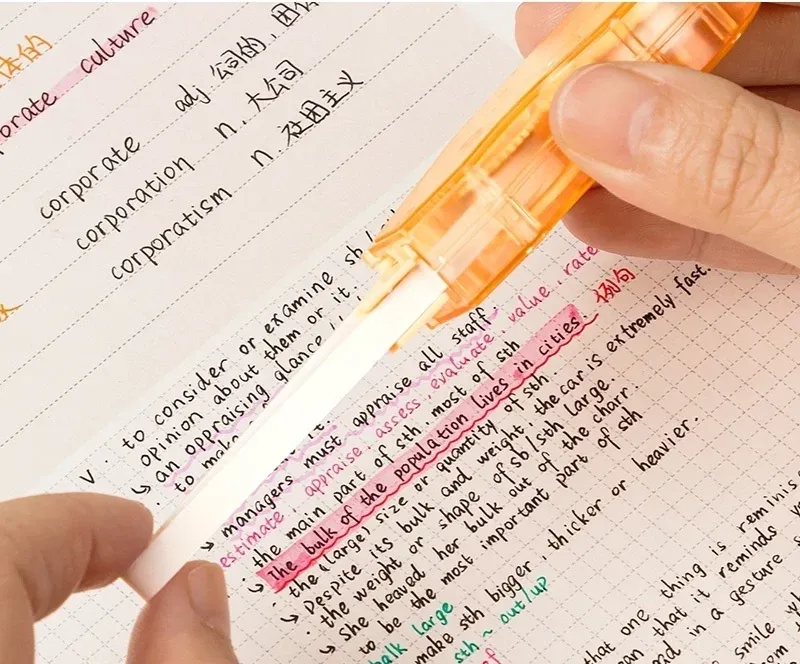 体的
orate culture
corporate adj 公司的,
corporation n. 大公司
corporatism n 社团主义
v. to consider or examine sb/
opinion about them or it.
an appraising glance
to make
managers must appraise all staff
estimate, appraise, assess, evaluate, value, rate
the main part of sth most of sth
The bulk of the population lives in cities 例句
the (large) size or quantity of sth
Despite its bulk and weight, the car is extremely fast.
the weight or shape of sb/sth large.
She heaved her bulk out of the charr.
to be the most important part of sth
make sth bigger, thicker or heavier.
bulk large
sth ~ out/up
that one thing is reminis
that it reminds
in a gesture
smile